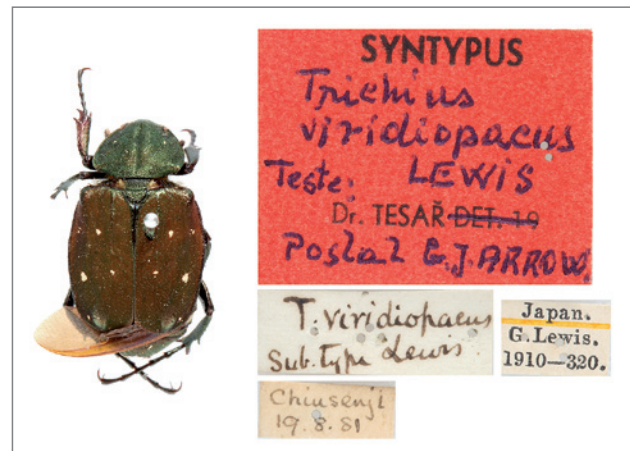 SYNTYPUS
Trichius
viridiopacus
Teste: LEWIS
Dr. TESAŘ DET. 19
Poslal G.J. ARROW.
T. viridiopacus
Sub. type Lewis
Japan.
G. Lewis.
1910—320.
Chiusenji
19. 8. 81